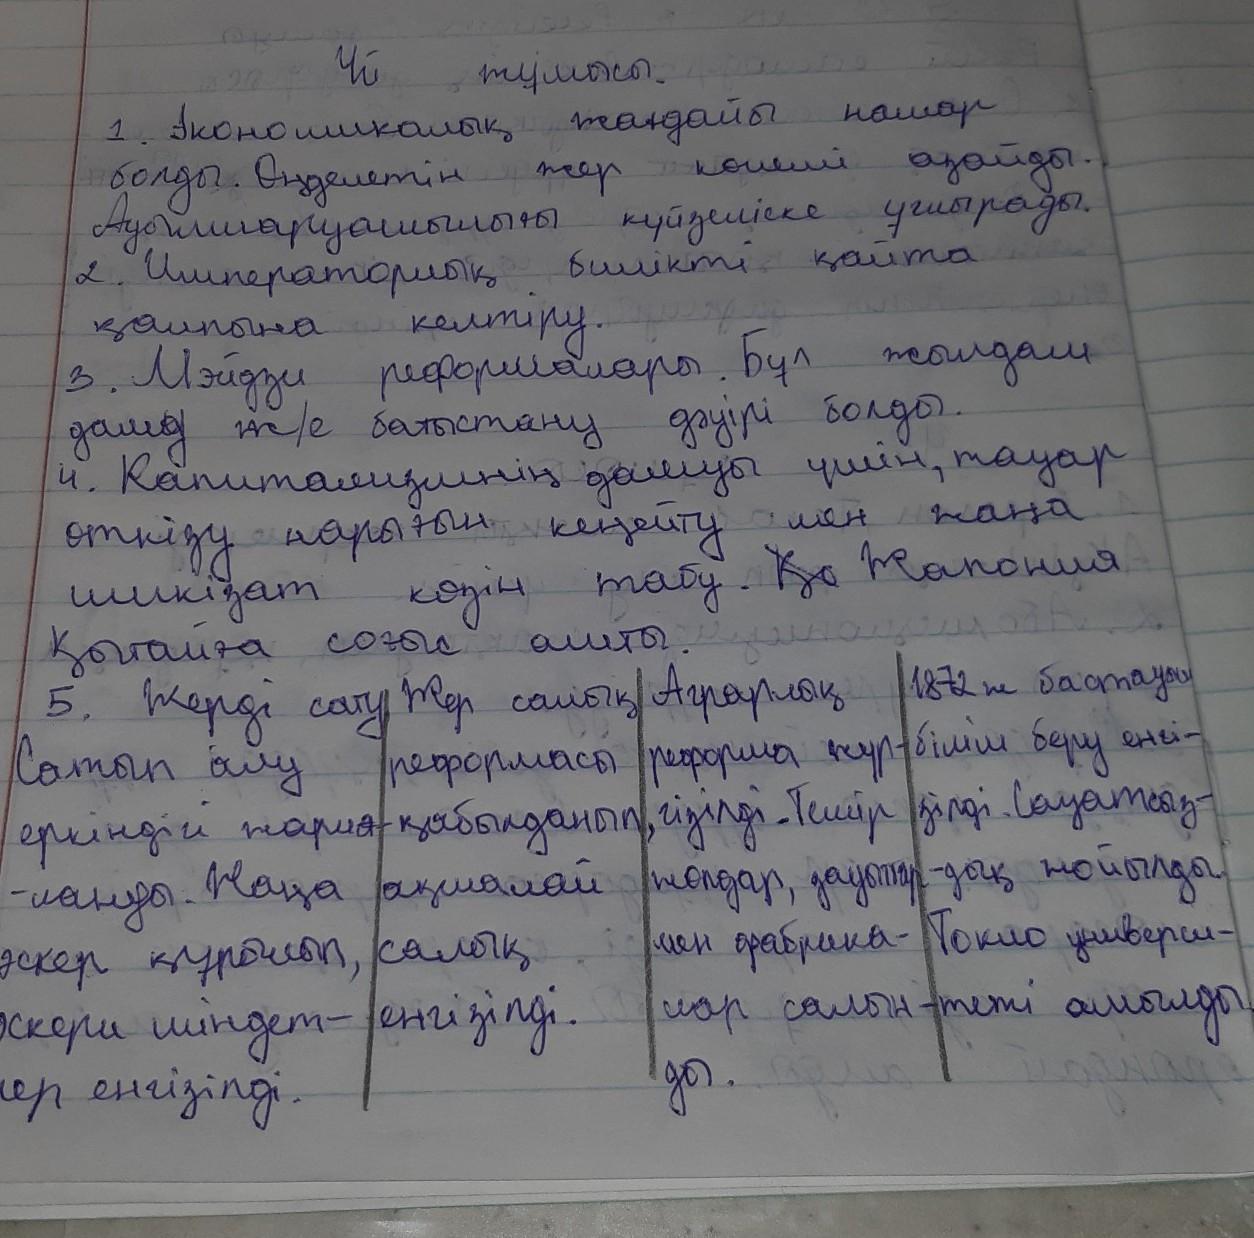 Үй жұмысы.
1. Экономикалық жағдайы нашар
болды. Өңделетін жер көлемі азайды.
Ауылшаруашылығы күйзеліске ұшырады.
2. Императорлық билікті қайта
қалпына келтіру.
3. Мэйдзи реформалары. Бұл жылдам
даму ж/е батыстану дәуірі болды.
4. Капитализмнің дамуы үшін, тауар
өткізу нарығын кеңейту мен жаңа
шикізат көзін табу. Жапония
Қытайға соғыс ашты.
5. Жерді сату
Сатып алу
еркіндігі жария-
-ланды. Жаңа
әскер құрылып,
әскери міндет-
лер енгізілді.
Жер салық
реформасы
қабылданып,
ақшалай
салық
енгізілді.
Аграрлық
реформа жүр-
гізілді. Темір
жолдар, зауыттар
мен фабрика-
лар салын-
ды.
1872 ж бастауыш
білім беру енгі-
зілді. Сауатсыз-
-дық жойылды.
Токио универси-
-теті ашылды